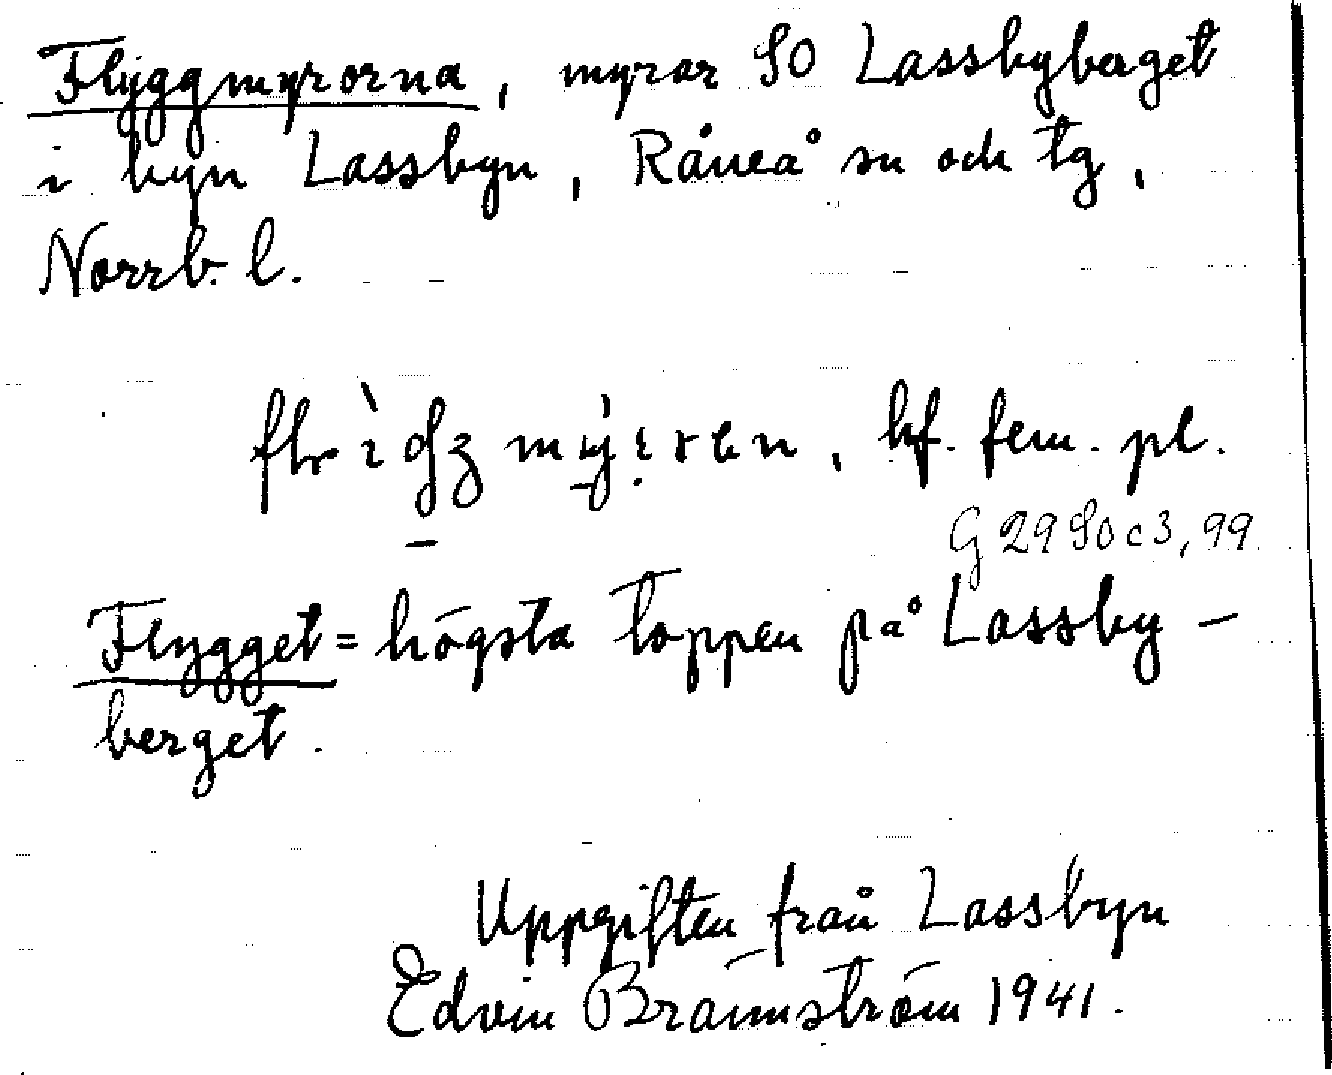 Flyggmyrorna, myrar SO Lassbyberget
i byn Lassbyn, Råneå sn och tg,
Norrb. l.
bf. fem. pl.
G 29 SO c 3, 99
Flygget = högsta toppen på Lassby-
berget.
Uppgiften från Lassbyn
Edvin Brännström 1941.